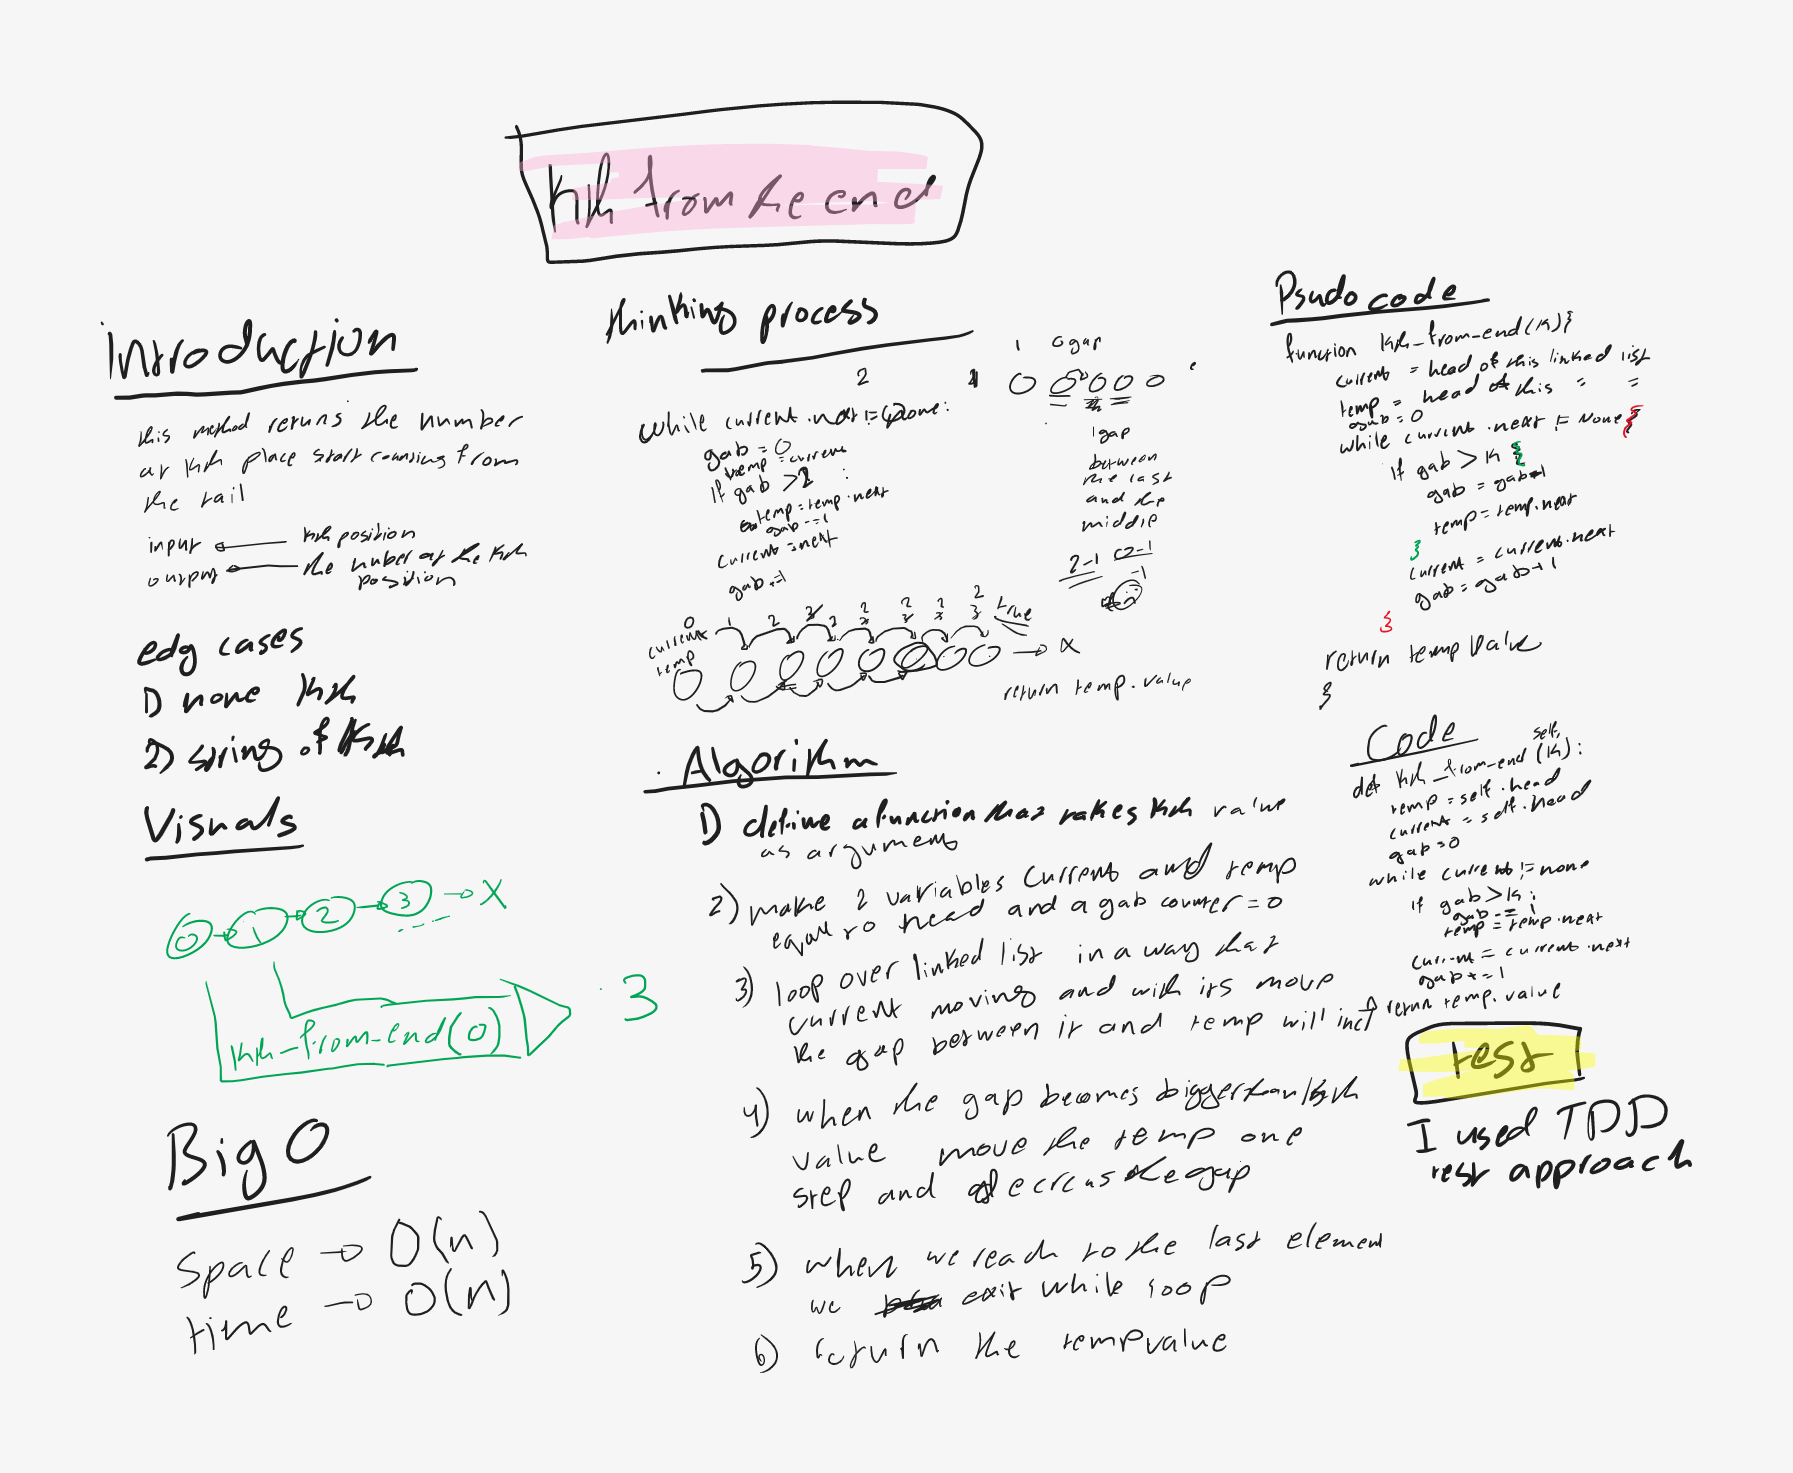 kth from the end
Introduction
this method returns the number
at kth place start counting from
the tail
input kth position
output the number at the kth
position
edg cases
1) none kth
2) string of kth
Visuals
0 → 1 → 2 → 3 → X
kth_from_end(0)
3
Big O
Space → O(n)
time → O(n)
thinking process
2
while current.next != None:
gab = 0
temp = current
if gab > 2 :
temp = temp.next
gab -= 1
current = next
gab += 1
1 0 gap
1 gap
between
the last
and the
middle
2-1 2-1
-1
0 1 2 3 2 2 2 2 True
current
temp
→ X
return temp.value
Algorithm
1) define a function that takes kth value
as argument
2) make 2 variables current and temp
equal to head and a gab counter = 0
3) loop over linked list in a way that
current moving and with its move
the gap between it and temp will incr
4) when the gap becomes bigger than kth
value move the temp one
step and decreas the gap
5) when we reach to the last element
we exit while loop
6) return the temp value
Psudo code
function kth_from-end(k){
current = head of this linked list
temp = head of this " "
gab = 0
while current.next != None {
if gab > k {
gab = gab-1
temp = temp.next
}
current = current.next
gab = gab+1
}
return temp value
}
Code
self,
def kth_from-end(k):
temp = self.head
current = self.head
gab = 0
while current != none
if gab > k:
gab -= 1
temp = temp.next
current = current.next
gab += 1
return temp.value
test
I used TDD
test approach